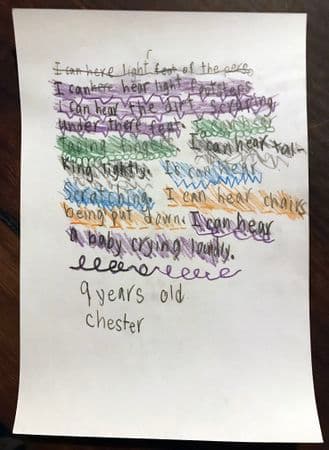 I can here light feet of the pere
I can here hear light footsteps
I can hear the dirt scraping
under there feet.
I can hear tal-
king lightly. I can hear
scratching. I can hear chairs
being put down. I can hear
a baby crying loudly.
9 years old
chester